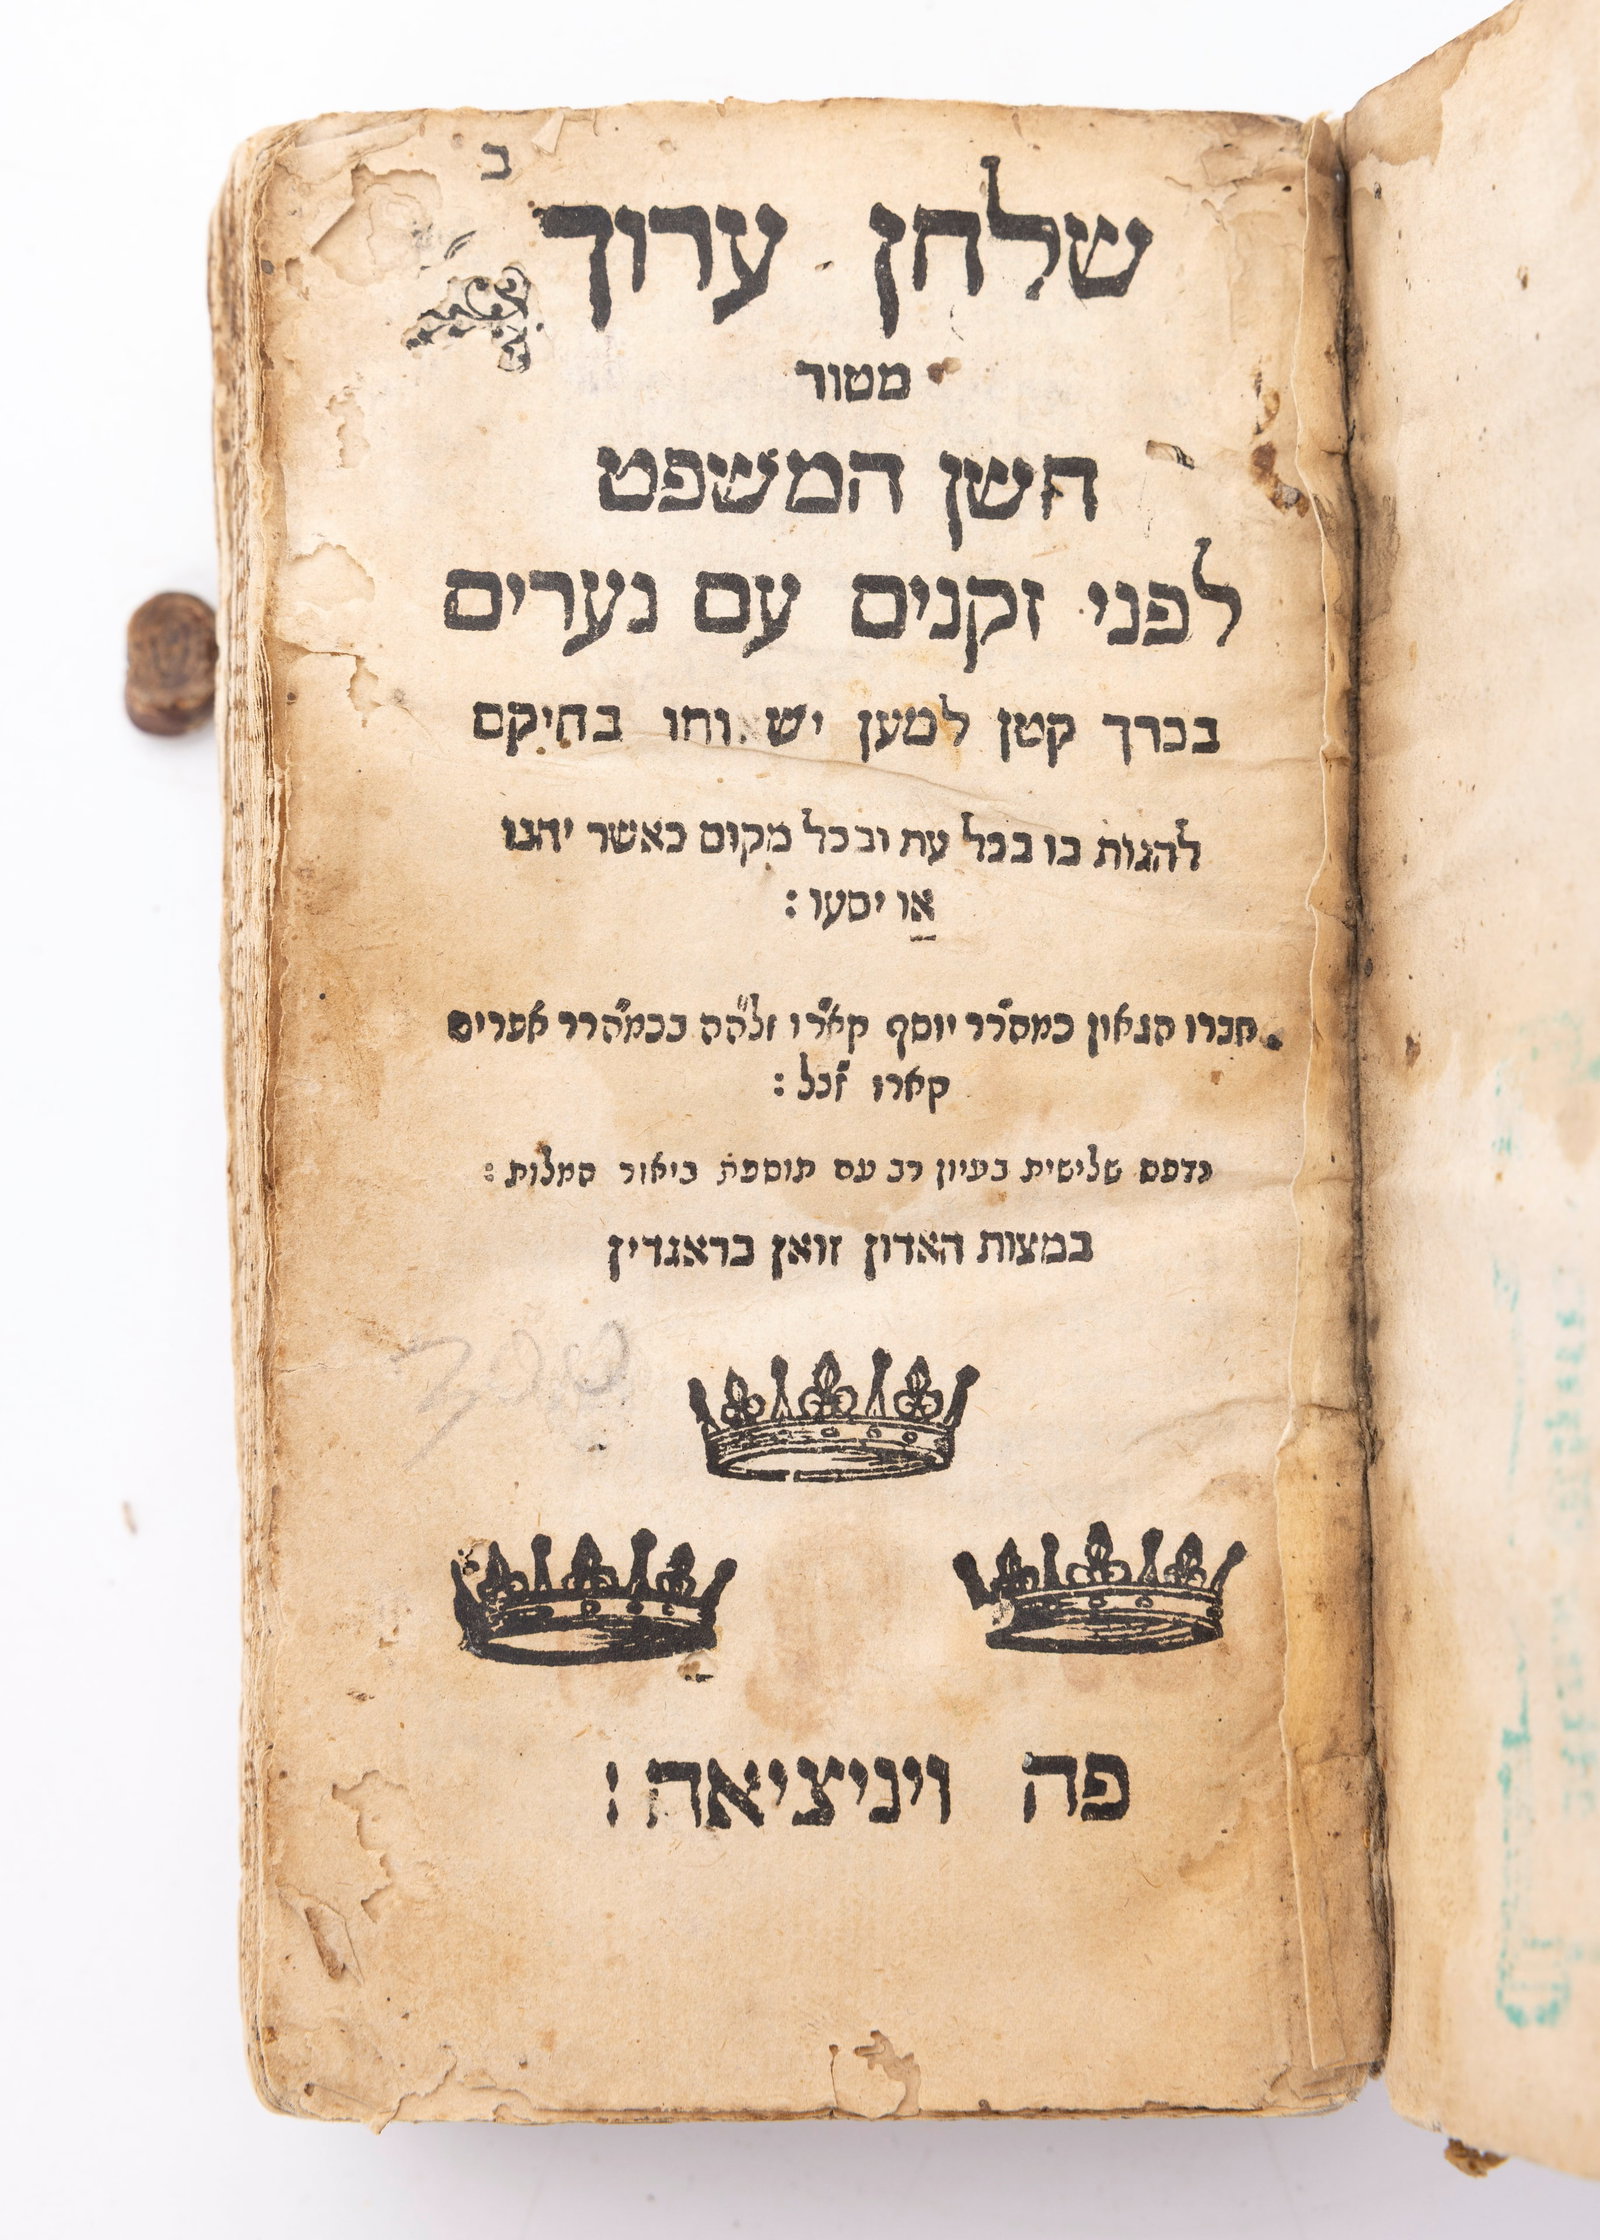 ב
שלחן ערוך
מטור
חשן המשפט
לפני זקנים עם נערים
בכרך קטן למען בחיקם
להגות בו בכל עת ובכל מקום כאשר יחנו
או יסעו :
חברו הגאון כמהר"ר יוסף קארו זלה"ה בכמהר"ר אפרים
קארו ז"ל :
נדפס שלישית בעיון רב עם תוספת ביאור המלות :
במצות האדון זואן בראגדין
פה ויניציאה :